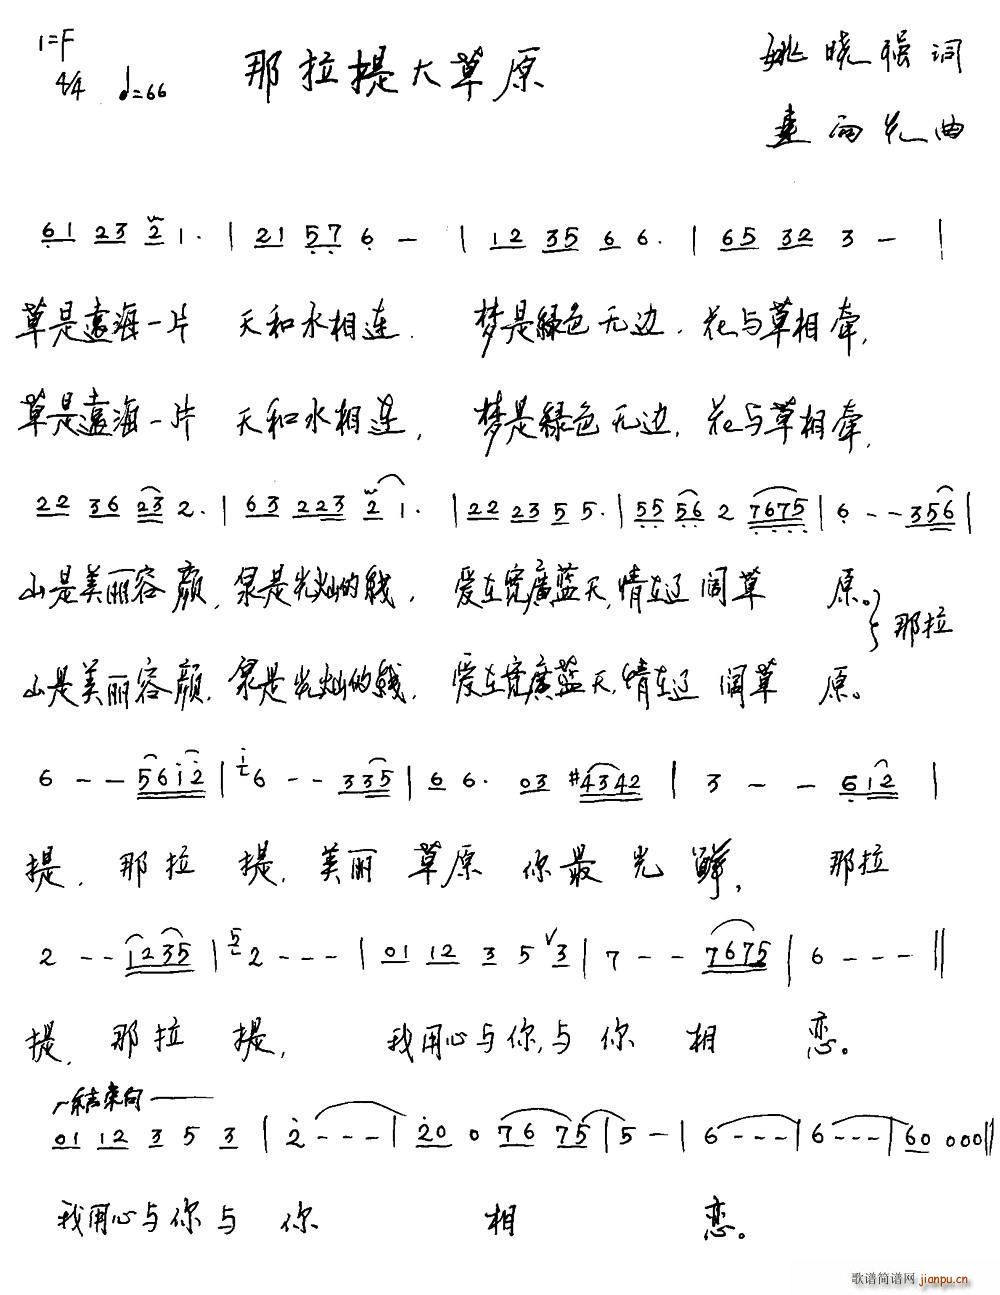 1=F
那拉提大草原
姚晓强词
4/4 ♩=66
雨光曲
61 23 2 1. | 21 57 6 - | 12 35 6 6. | 65 32 3 - |
草是远海一片 天和水相连. 梦是绿色无边. 花与草相牵,
草是远海一片 天和水相连, 梦是绿色无边. 花与草相牵,
22 36 23 2. | 63 223 2 1. | 22 23 5 5. | 55 56 2 7675 | 6 - - 356 |
山是美丽容颜, 泉是光灿的线. 爱在宽广蓝天, 情在辽阔草原。
那拉
山是美丽容颜. 泉是光灿的线. 爱在宽广蓝天, 情在辽阔草原。
6 - - 5612 | 1 6 - - 335 | 6 6. 03 #4342 | 3 - - 612 |
提, 那拉提, 美丽草原你最光鲜, 那拉
2 - - 1235 | 5 2 - - - | 01 12 3 5 ∨ 3 | 7 - - 7675 | 6 - - - ‖
提, 那拉提, 我用心与你, 与你相恋。
结束句
01 12 3 5 3 | 2 - - - | 20 0 76 75 | 5 - | 6 - - - | 6 - - - | 60 000 ‖
我用心与你与你相恋。
歌谱简谱网 jianpu.cn